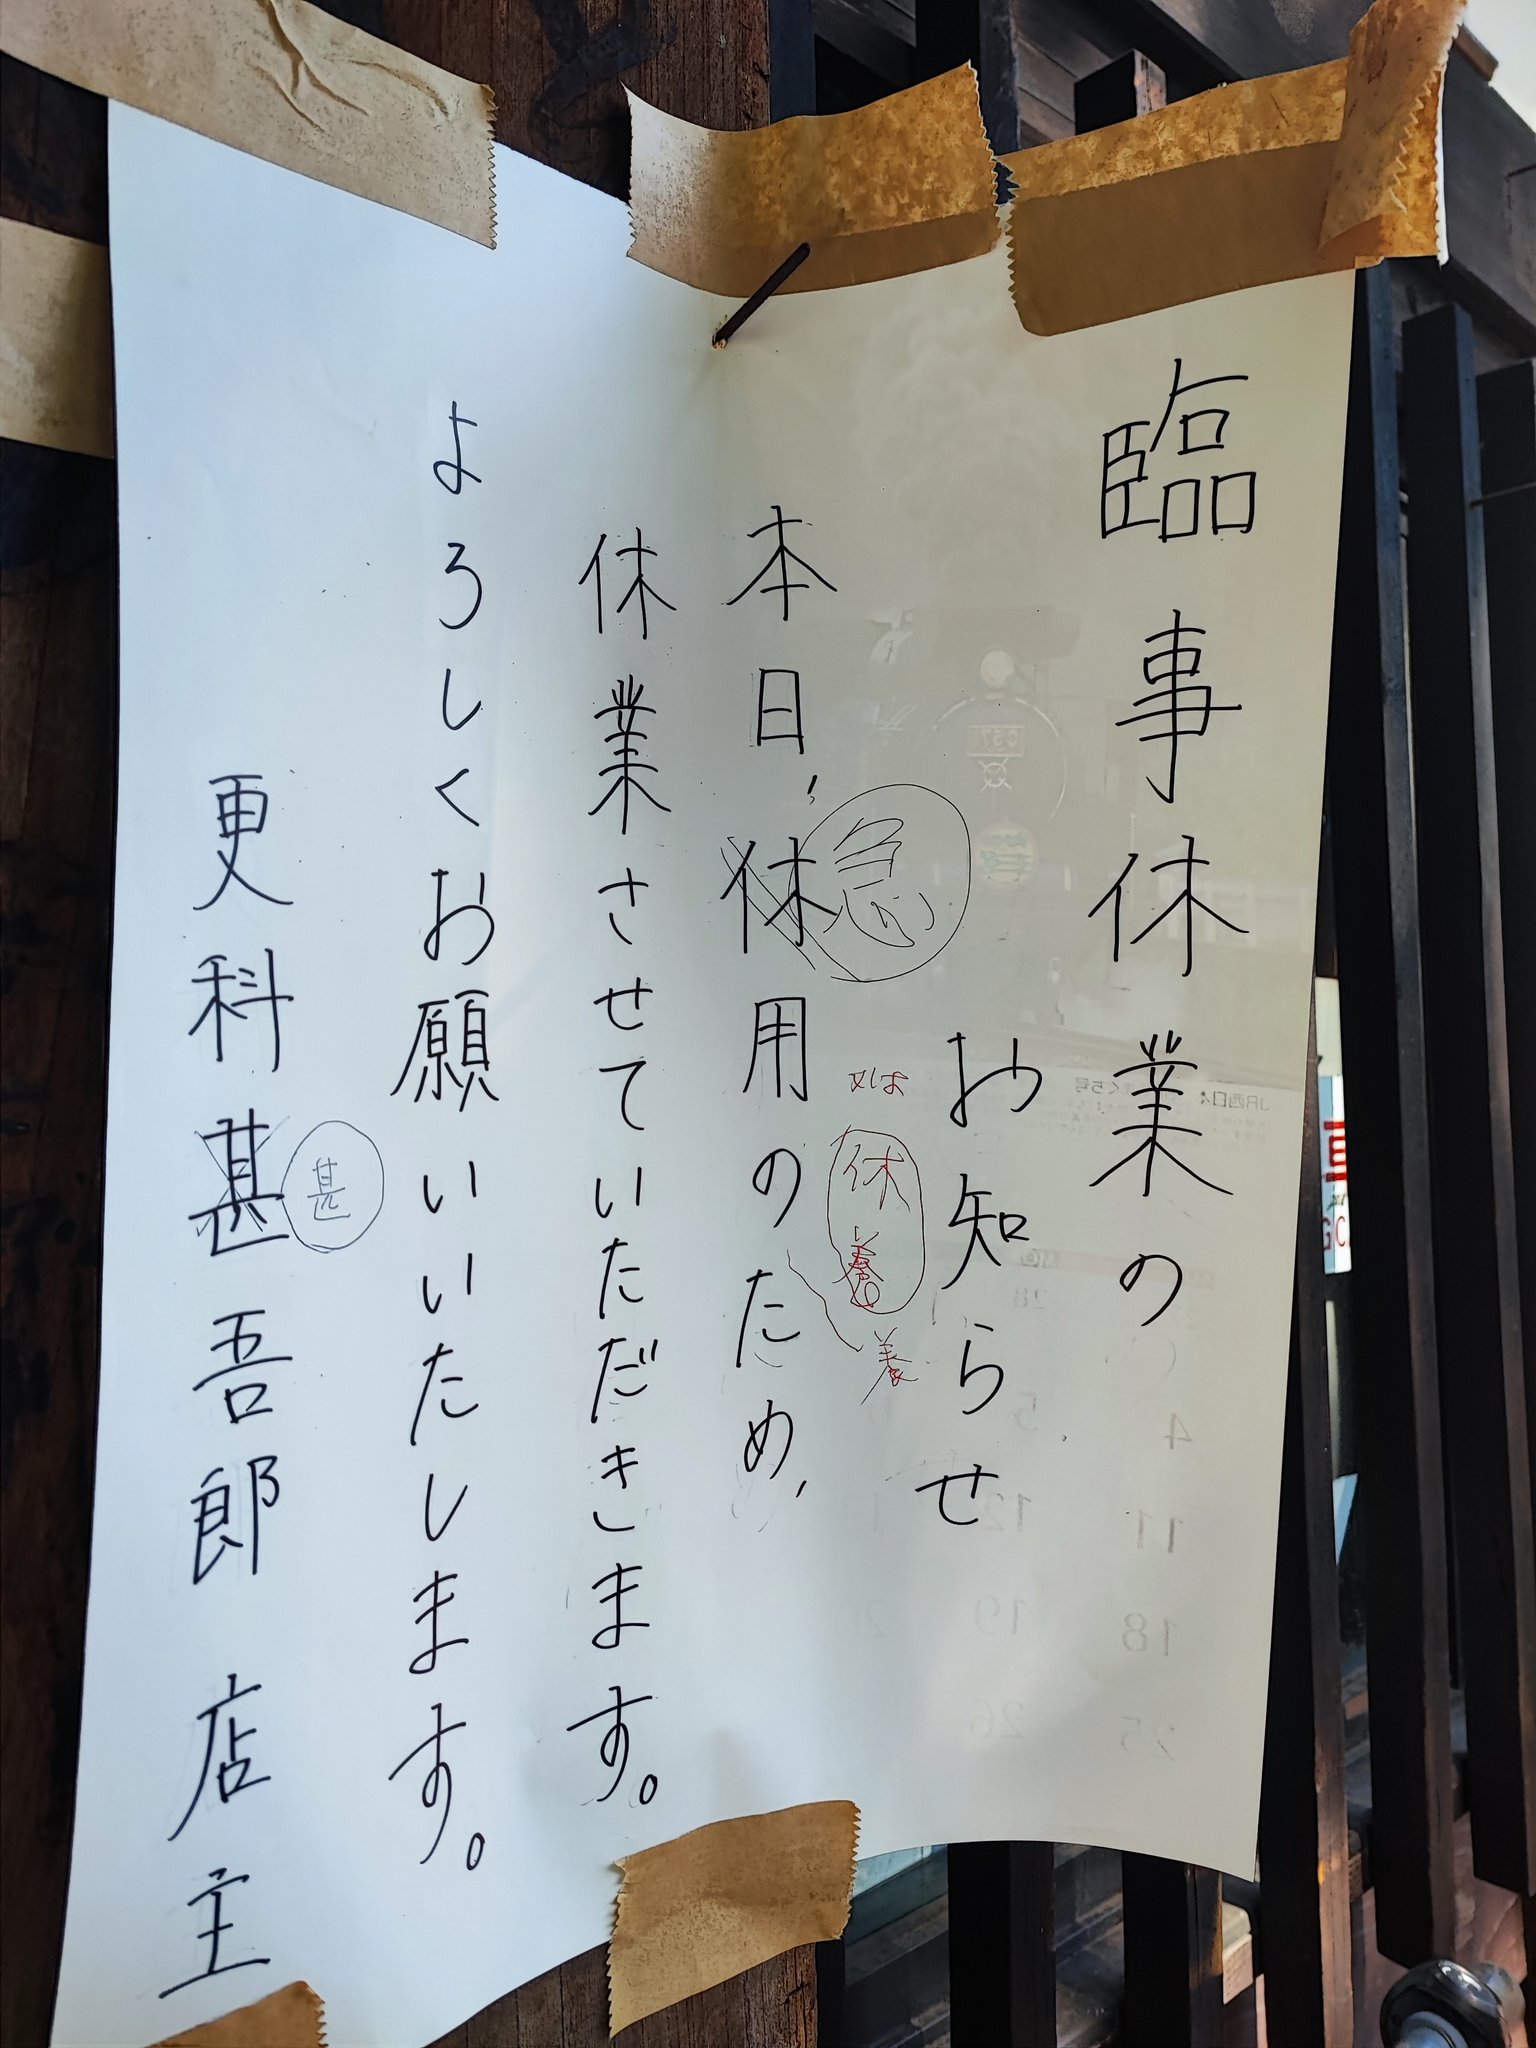 臨時休業の
お知らせ
本日、休用のため、
急
又は
休養
養
休業させていただきます。
よろしくお願いいたします。
更科甚吾郎 店主
甚